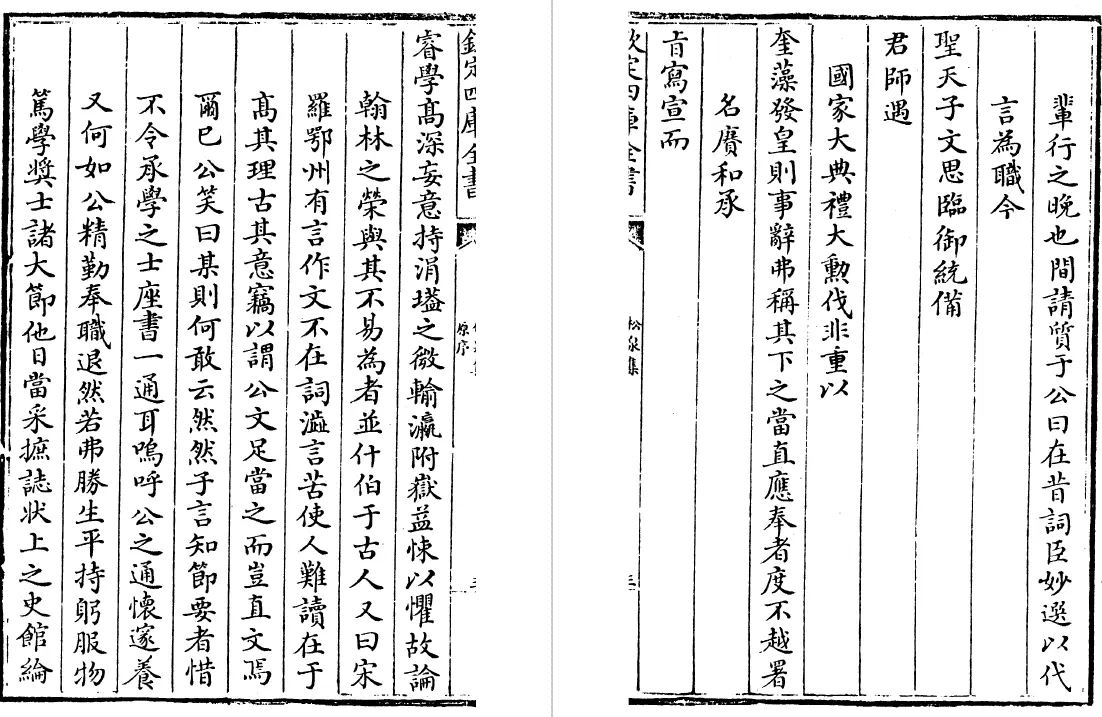 輩行之晚也間請質于公曰在昔詞臣妙選以代
言為職今
聖天子文思臨御統備
君師遇
國家大典禮大勲伐非重以
奎藻發皇則事辭弗稱其下之當直應奉者度不越署
肯寫宣而
名賡和承
欽定四庫全書
松泉集
三
欽定四庫全書
原序
睿學髙深妄意持涓𡏖之微輸瀛附嶽益悚以懼故論
翰林之榮與其不易為者並什伯于古人又曰宋
羅鄂州有言作文不在詞澁言苦使人難讀在于
髙其理古其意竊以謂公文足當之而豈直文焉
爾已公笑曰某則何敢云然然子言知節要者惜
不令承學之士座書一通耳嗚呼公之通懷邃養
又何如公精勤奉職退然若弗勝生平持躬服物
篤學奬士諸大節他日當采摭誌狀上之史館綸